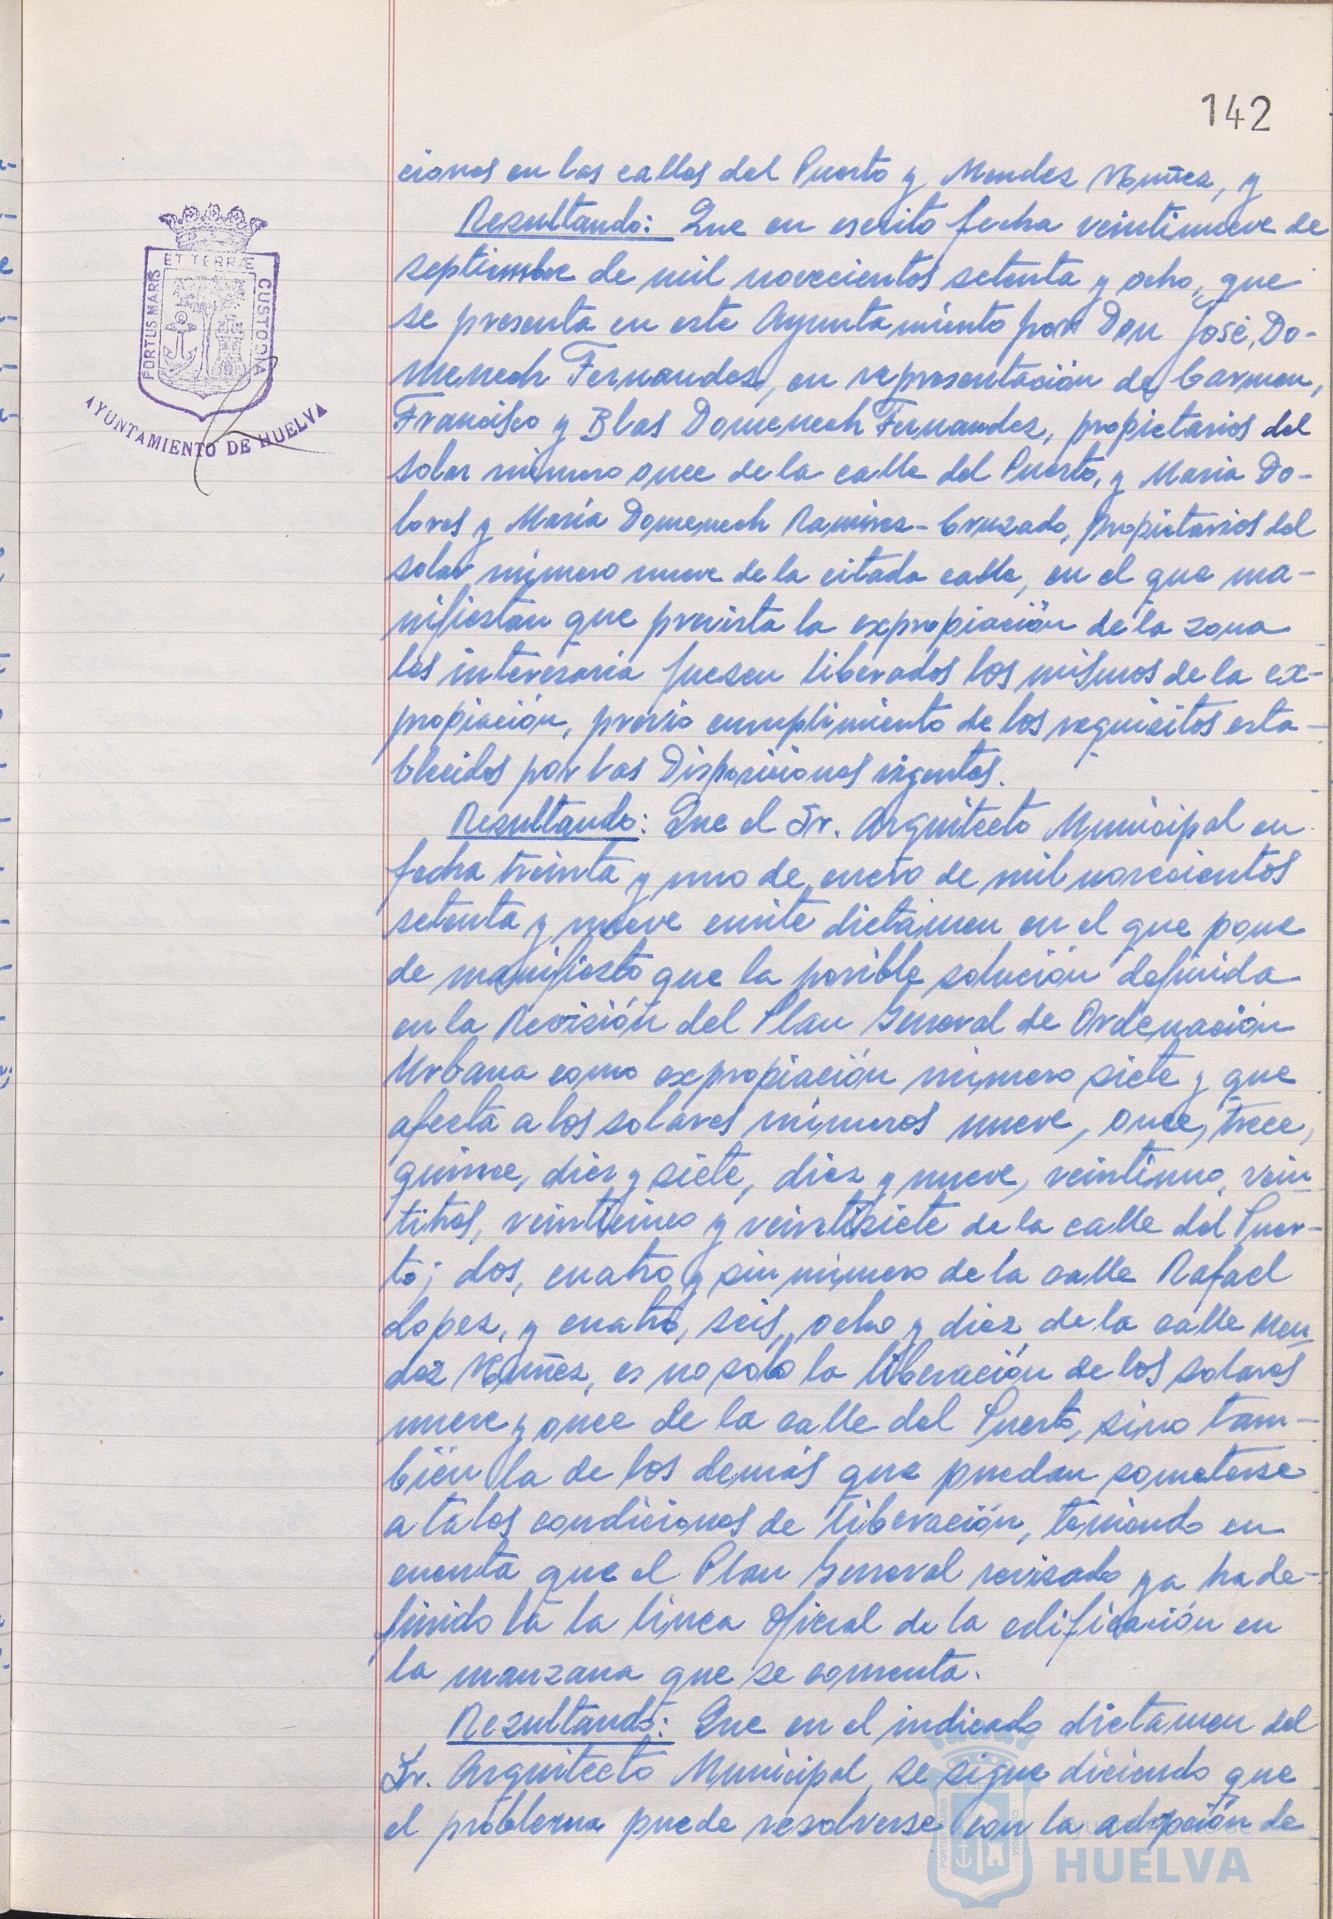 142
ciones en las calles del Puerto y Mendez Nuñez, y
Resultando: Que en escrito fecha veintinueve de
septiembre de mil novecientos setenta y ocho, que
se presenta en este Ayuntamiento por Don José Do-
menech Fernandez, en representación de Carmen,
Francisco y Blas Domenech Fernandez, propietarios del
solar número once de la calle del Puerto, y Maria Do-
lores y María Domenech Ramirez-Cruzado, propietarios del
solar número nueve de la citada calle, en el que ma-
nifiestan que prevista la expropiación de la zona
les interesaria fuesen liberados los mismos de la ex-
propiación, previo cumplimiento de los requisitos esta-
blecidos por las Disposiciones vigentes.
Resultando: Que el Sr. Arquitecto Municipal en
fecha treinta y uno de enero de mil novecientos
setenta y nueve emite dictámen en el que pone
de manifiesto que la posible solución definida
en la Revisión del Plan General de Ordenación
Urbana como expropiación número siete y que
afecta a los solares números nueve, once, trece,
quince, diez y siete, diez y nueve, veintiuno, vein
titres, veinticinco y veintisiete de la calle del Puer-
to; dos, cuatro y sin número de la calle Rafael
Lopez, y cuatro, seis, ocho y diez de la calle Men
dez Nuñez, es no solo la liberación de los solares
nueve y once de la calle del Puerto, sino tam-
bién la de los demás que puedan someterse
a tales condiciones de liberación, teniendo en
cuenta que el Plan General revisado ya ha de-
finido la la linea oficial de la edificación en
la manzana que se comenta.
Resultando: Que en el indicado dictamen del
Sr. Arquitecto Municipal, se sigue diciendo que
el problema puede resolverse con la adopción de
PORTUS MARIS ET TERRÆ CUSTODIA
AYUNTAMIENTO DE HUELVA
HUELVA